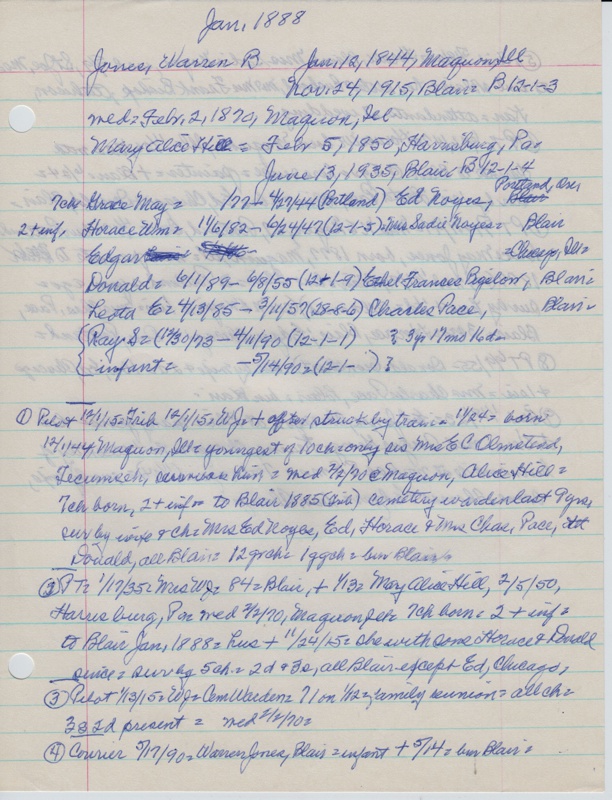 Jan, 1888
Jones, Warren B Jan, 12, 1844, Maquon, Ill
Nov. 24, 1915, Blair = B 12-1-3
med = Febr, 2, 1870, Maquon, Ill
Mary Alice Hill = Febr 5, 1850, Harrisburg, Pa,
June 13, 1935, Blair B 12-1-4
7ch = Grace May = /77 - 4/27/44 (Portland) Ed Noyes, Portland, Ore,
2 + inf, Horace Wm = 11/6/82 - 6/24/47 (12-1-5) = Mrs Sadie Noyes = Blair
Edgar = Chicago, Ill =
Donald = 6/1/89 - 6/8/55 (12-1-9) Ethel Frances Bigelow, Blair =
Leota E = 4/13/85 - 3/11/57 (28-8-6) Charles Pace, Blair =
Ray S = (1/30/73 - 4/11/90 (12-1-1) 3 yr 17 md
infant = - 5/14/90 = (12-1- )
① Pilot 12/1/15 = Trib 12/1/15 = WJ + after struck by train = 11/24 = born
12/1/44 Maquon, Ill = youngest of 10ch = only sis Mrs E C Olmstead,
Tecumseh, survives him = med 2/2/70 @ Maquon, Alice Hill =
7ch born, 2 + inf = to Blair 1885 (Trib) cemetery warden last 9 yrs,
sur by wife + ch = Mrs Ed Noyes, Ed, Horace & Mrs Chas, Pace,
Donald, all Blair = 12 grch = 1 ggch = bur Blair,
② PT = 1/17/35 = Mrs WJ = 84 = Blair, + 1/13 = Mary Alice Hill, 2/5/50,
Harrisburg, Pa = med 2/2/70, Maquon Ill = 7ch born = 2 + inf =
to Blair Jan, 1888 = hus + 11/24/15 = she with sons Horace & Donald
since = sur by 5ch = 2d & 3s, all Blair except Ed, Chicago,
③ Pilot 1/13/15 = WJ = Cem Warden = 71 on 1/12 = family reunion = all ch =
3s 2d present = med 2/2/70 =
④ Courier 5/17/90 = Warren Jones, Blair = infant + 5/14 = bur Blair =